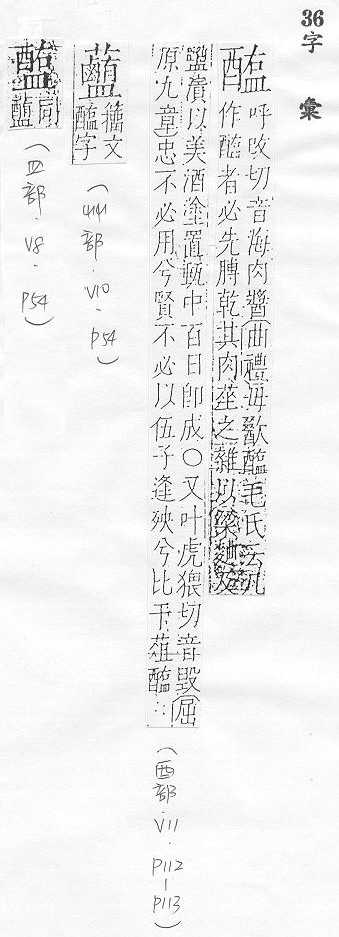 36 字 彙
醢 呼改切音海肉醬曲禮毋歠醢毛氏云凡
作醢者必先膊乾其肉莝之雜以粱麴及
鹽漬以美酒塗置甀中百日即成○又叶虎猥切音毀屈
原九章忠不必用兮賢不必以伍子逢殃兮比干葅醢
(酉部.V11.P112-P113)
籀文
醢字
(艸部.V10.P54)
同
(皿部.V8.P54)